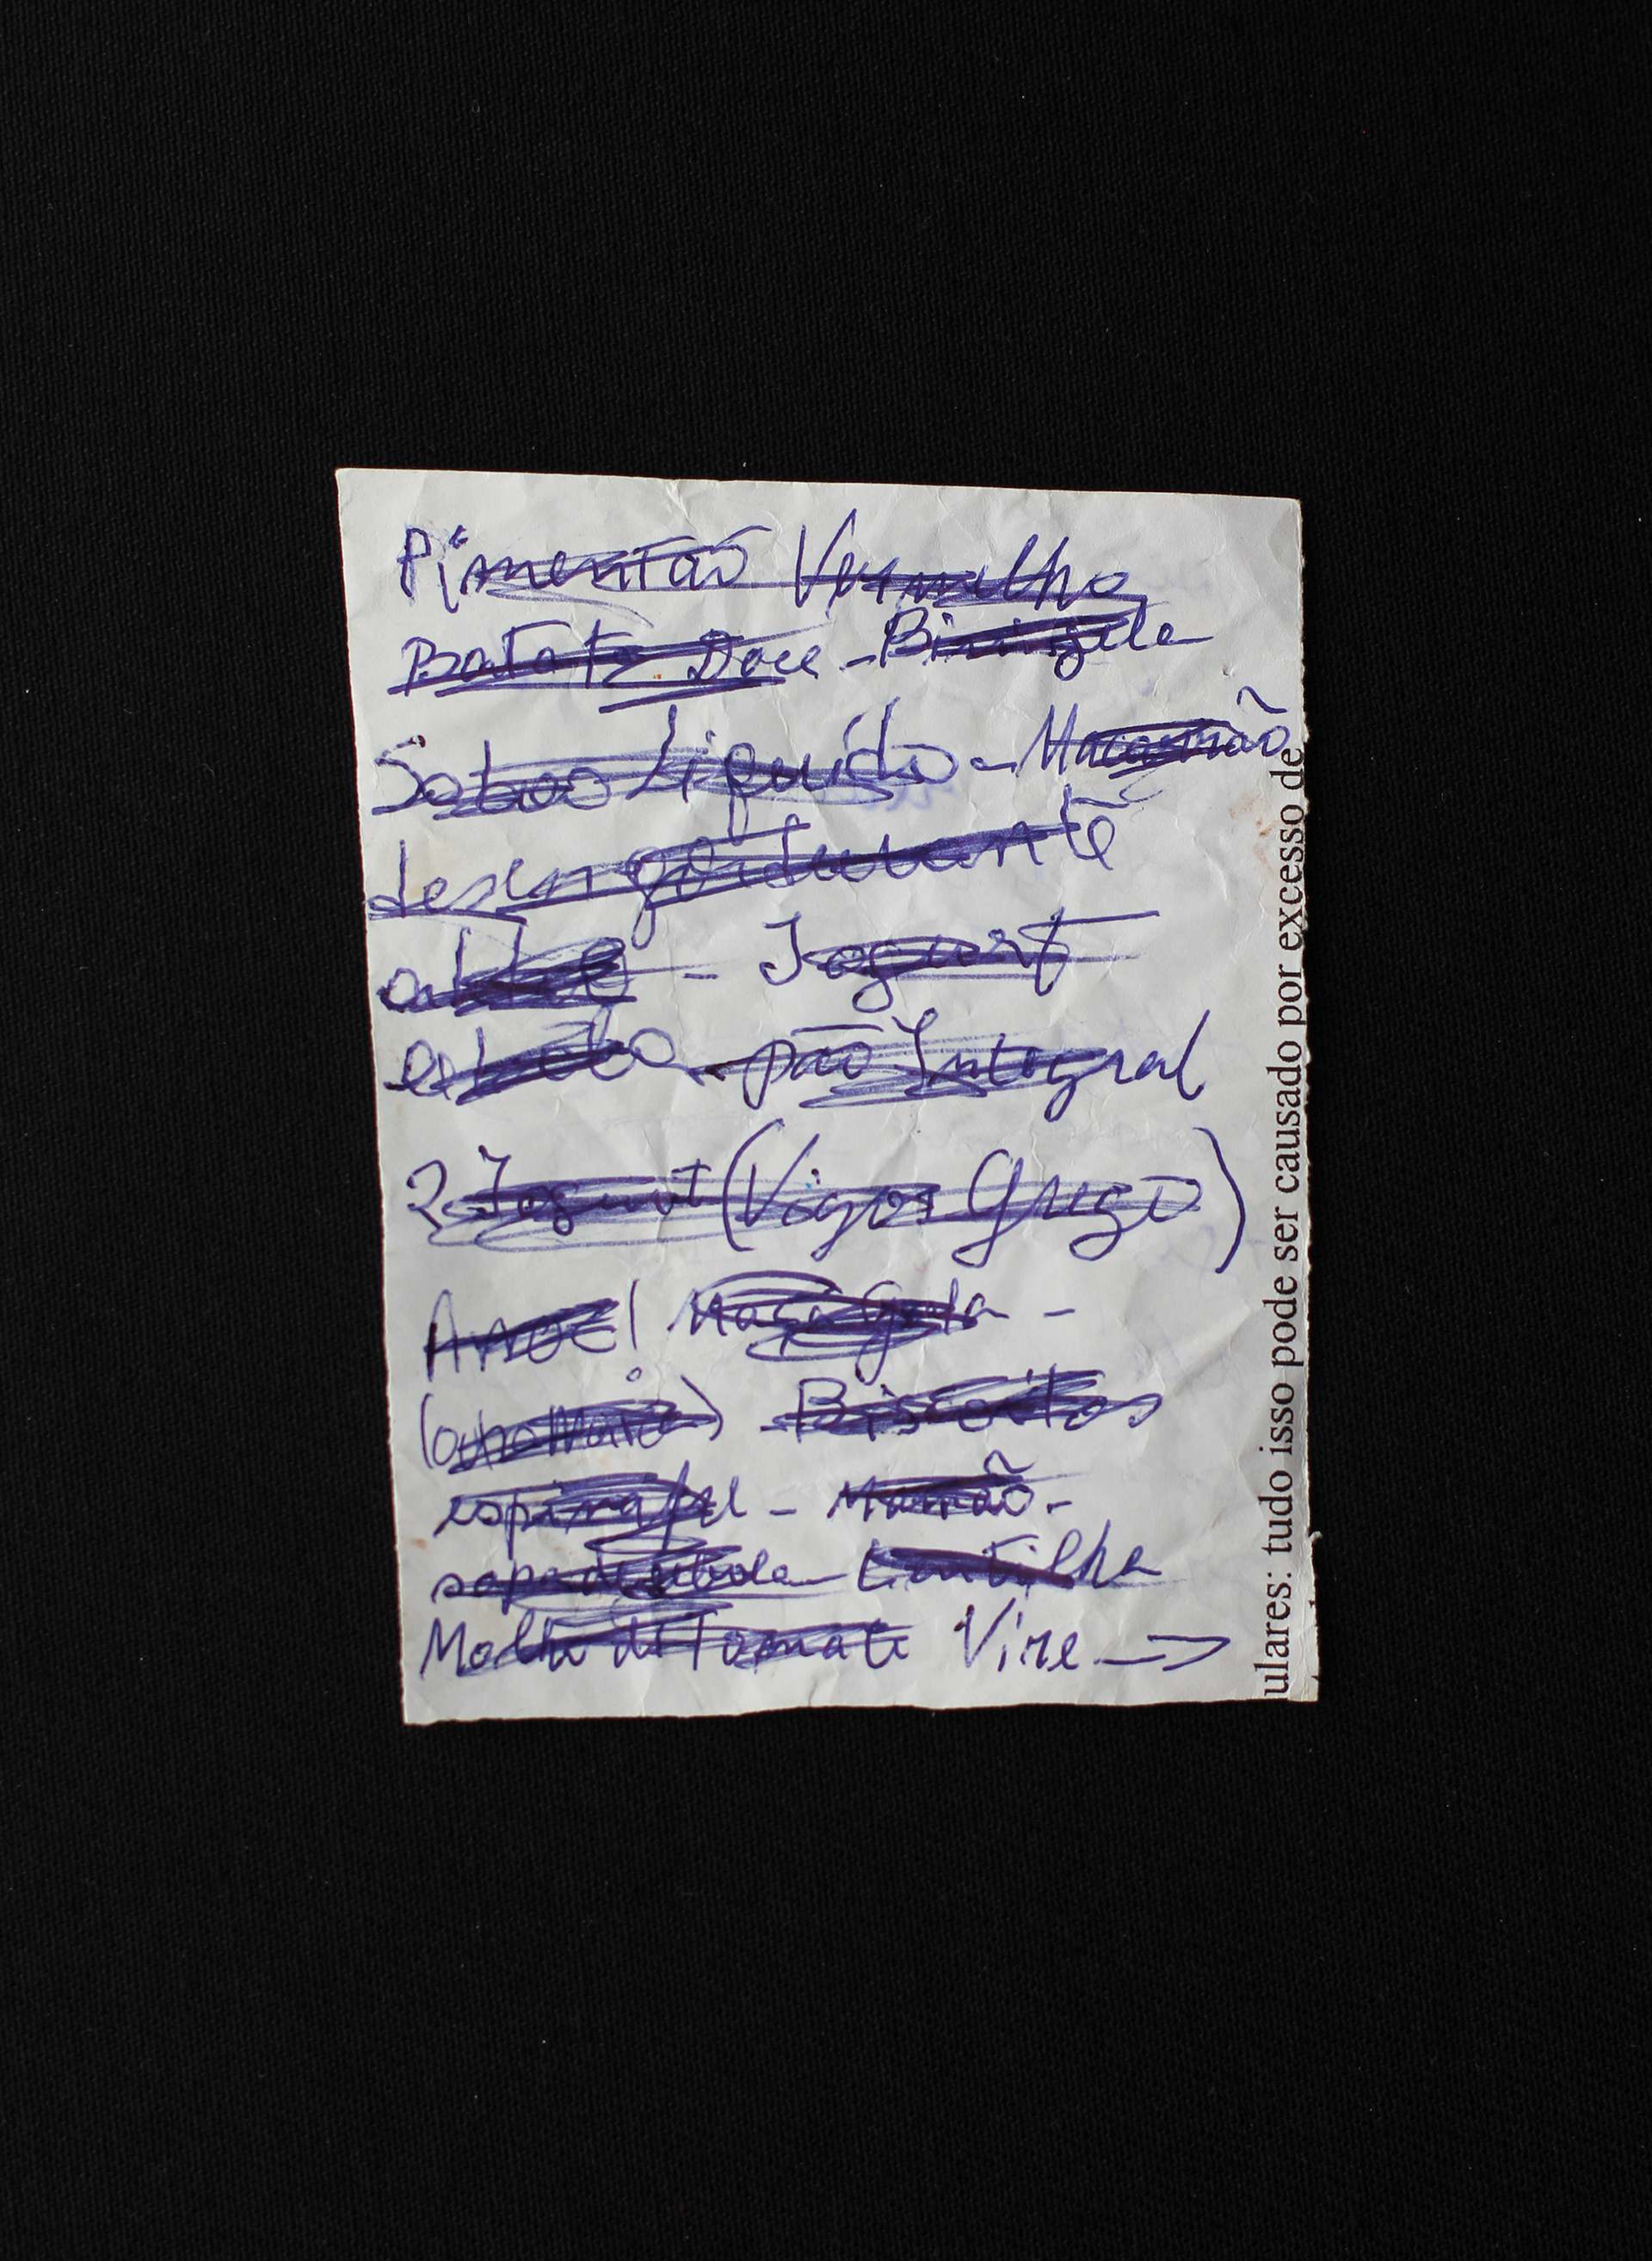 Pimentão Vermelho
Batata Doce - Birigela
Sabao Liquído - Macarrão
desengordurante
- Iogurt
- pão Integral
2 Iogurt (Vigor Grego)
Arroz! Maçã Gala -
Biscoitos
espinafre - Mamão -
sopa de cebola - Lentilha
Molho di Tomate Vire →
ulares: tudo isso pode ser causado por excesso de